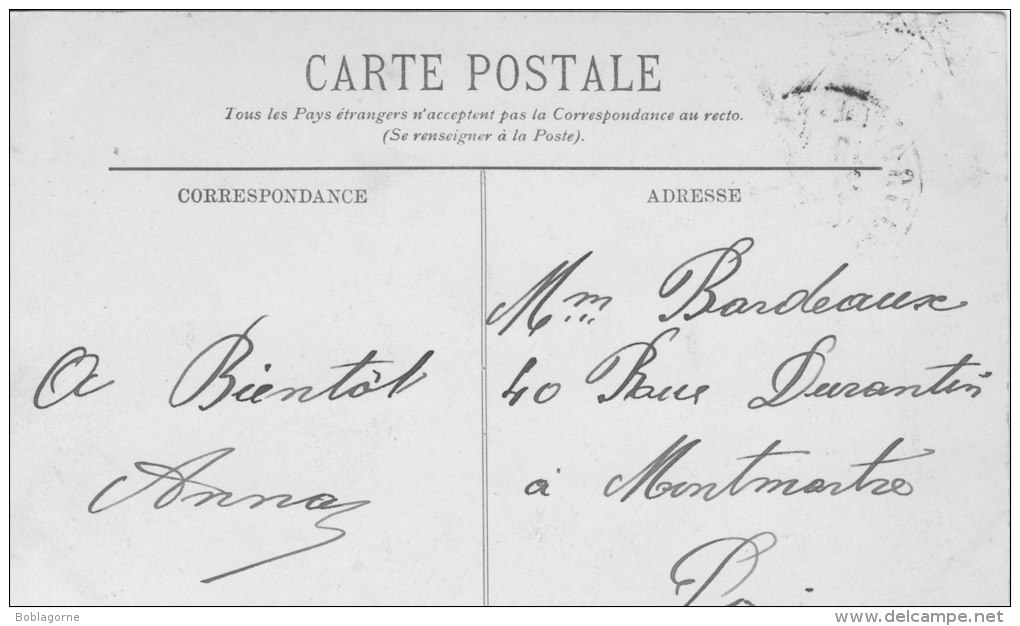 CARTE POSTALE
Tous les Pays étrangers n'acceptent pas la Correspondance au recto.
(Se renseigner à la Poste).
CORRESPONDANCE
A Bientôt
Anna
ADRESSE
Mme Bardeaux
40 Rue Durantin
à Montmartre
Boblagorne
www.delcampe.net